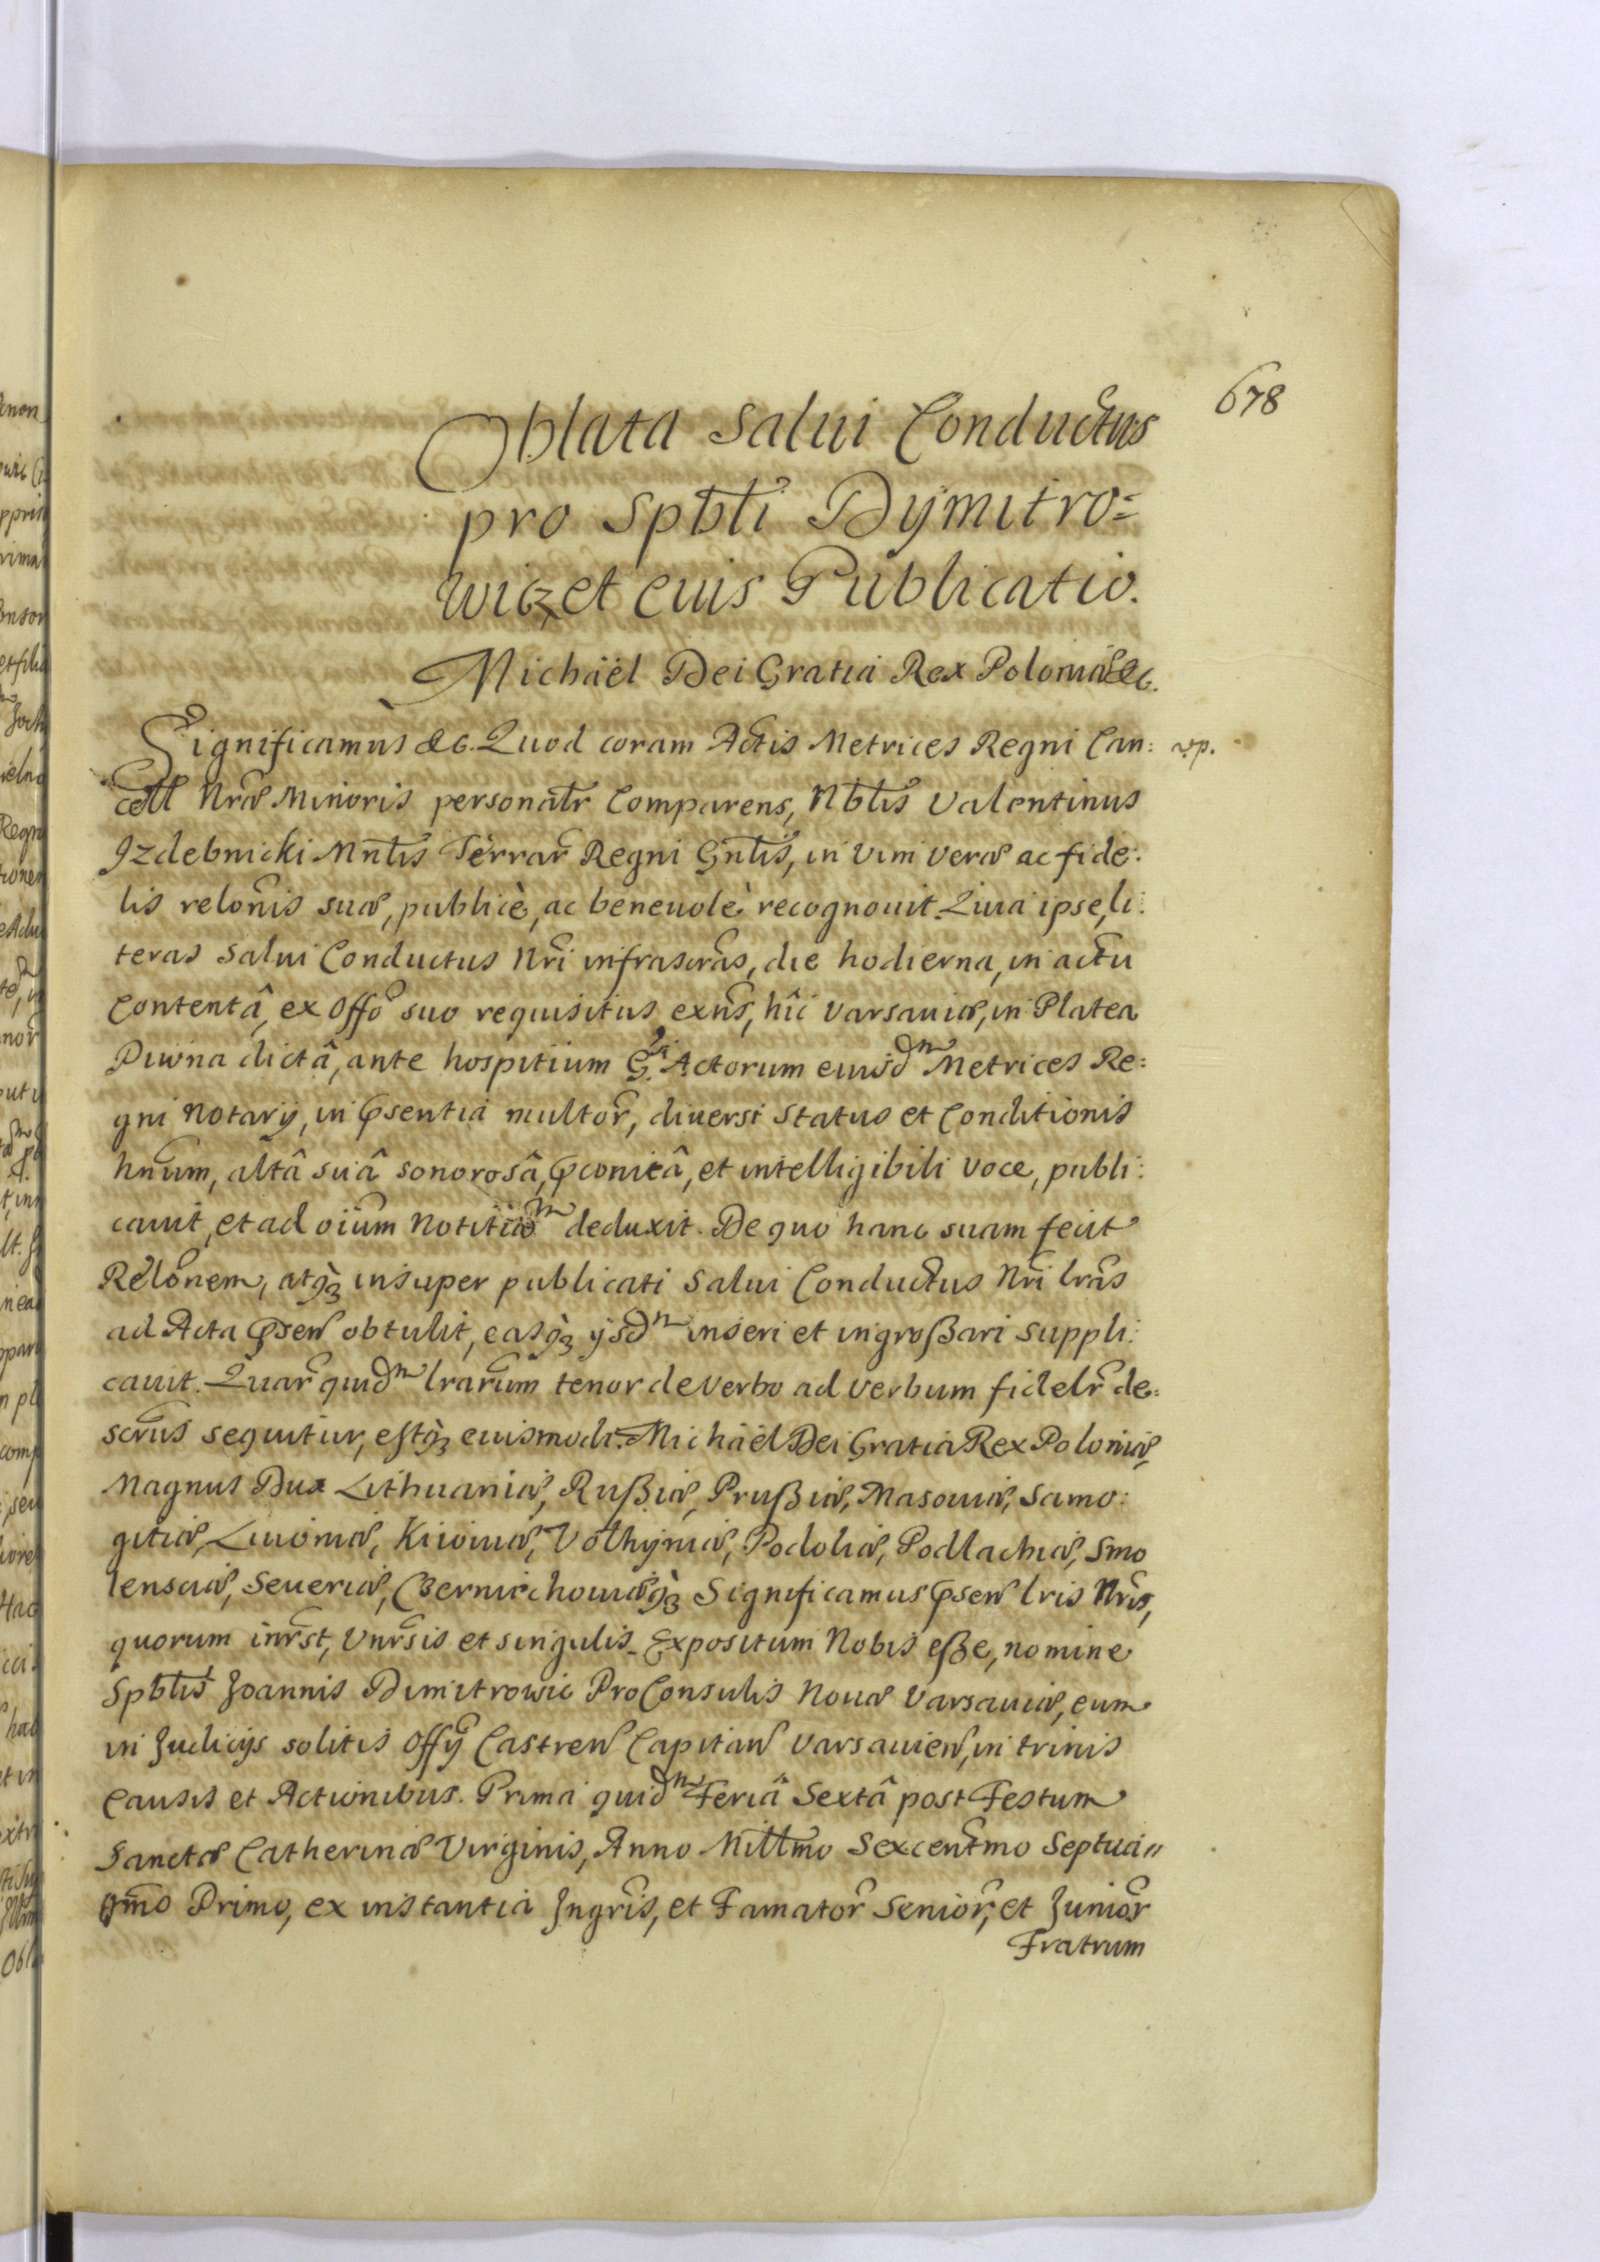 678
Oblata Salui Conductus
pro Spbli Dymitro=
wicz, et euis Publicatio.
Michaël Dei Gratia Rex Poloniæ &c.
Significamus &c. Quod coram Actis Metrices Regni Can:
cell Nræ Minoris personalr Comparens, Nblis Valentinus
Jzdebnicki Mntis Terrar Regni Gnlis, in vim veræ ac fide:
lis relonis suæ, publicè, ac beneuolè recognouit. Quia ipse, li:
teras Salui Conductus Nri infrascras, die hodierna, in actu
Contentâ, ex Offo suo requisitus exns, hîc Varsauiæ, in Platea
Piwna dictâ, ante hospitium G. Actorum euisdm Metrices Re:
gni Notarij, in Psentia multor, diuersi Status et Conditionis
hnum, altâ suâ sonorosâ, Pconicâ, et intelligibili voce, publi:
cauit, et ad oium Notitiam deduxit. De quo hanc suam fecit
Relonem, atq3 insuper publicati Salui Conductus Nri lras
ad Acta Psen obtulit, easq3 ijsdm inseri et ingroßari suppli:
cauit. Quar quidm lrarum tenor de Verbo ad Verbum fidelr de:
scrus sequitur, estq3 euismodi. Michaël Dei Gratia Rex Poloniæ,
Magnus Dux Lithuaniæ, Rußiæ, Prußiæ, Masouiæ, Samo:
gitiæ, Liuoniæ, Kiiouiæ, Volhyniæ, Podoliæ, Podlachiæ, Smo
lensciæ, Seueriæ, Czernichouiæq3 Significamus Psen lris Nris,
quorum inrst, Vnrsis et singulis. Expositum Nobis eße, nomine
Spblis Joannis Dimitrowic ProConsulis Nouæ Varsauiæ, eum
in Judicijs solitis Offij Castren Capitan Varsauien, in trinis
Causis et Actionibus. Prima quidm Feriâ Sextâ post Festum
Sanctæ Catherinæ Virginis, Anno Millmo Sexcentmo Septua"
gmo Primo, ex instantia Jngris, et Famator Senior, et Junior
Fratrum